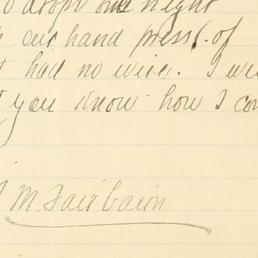 o drop one night
our hand press. of
t had no wire. I we
t you know how I co
M. Fairbairn